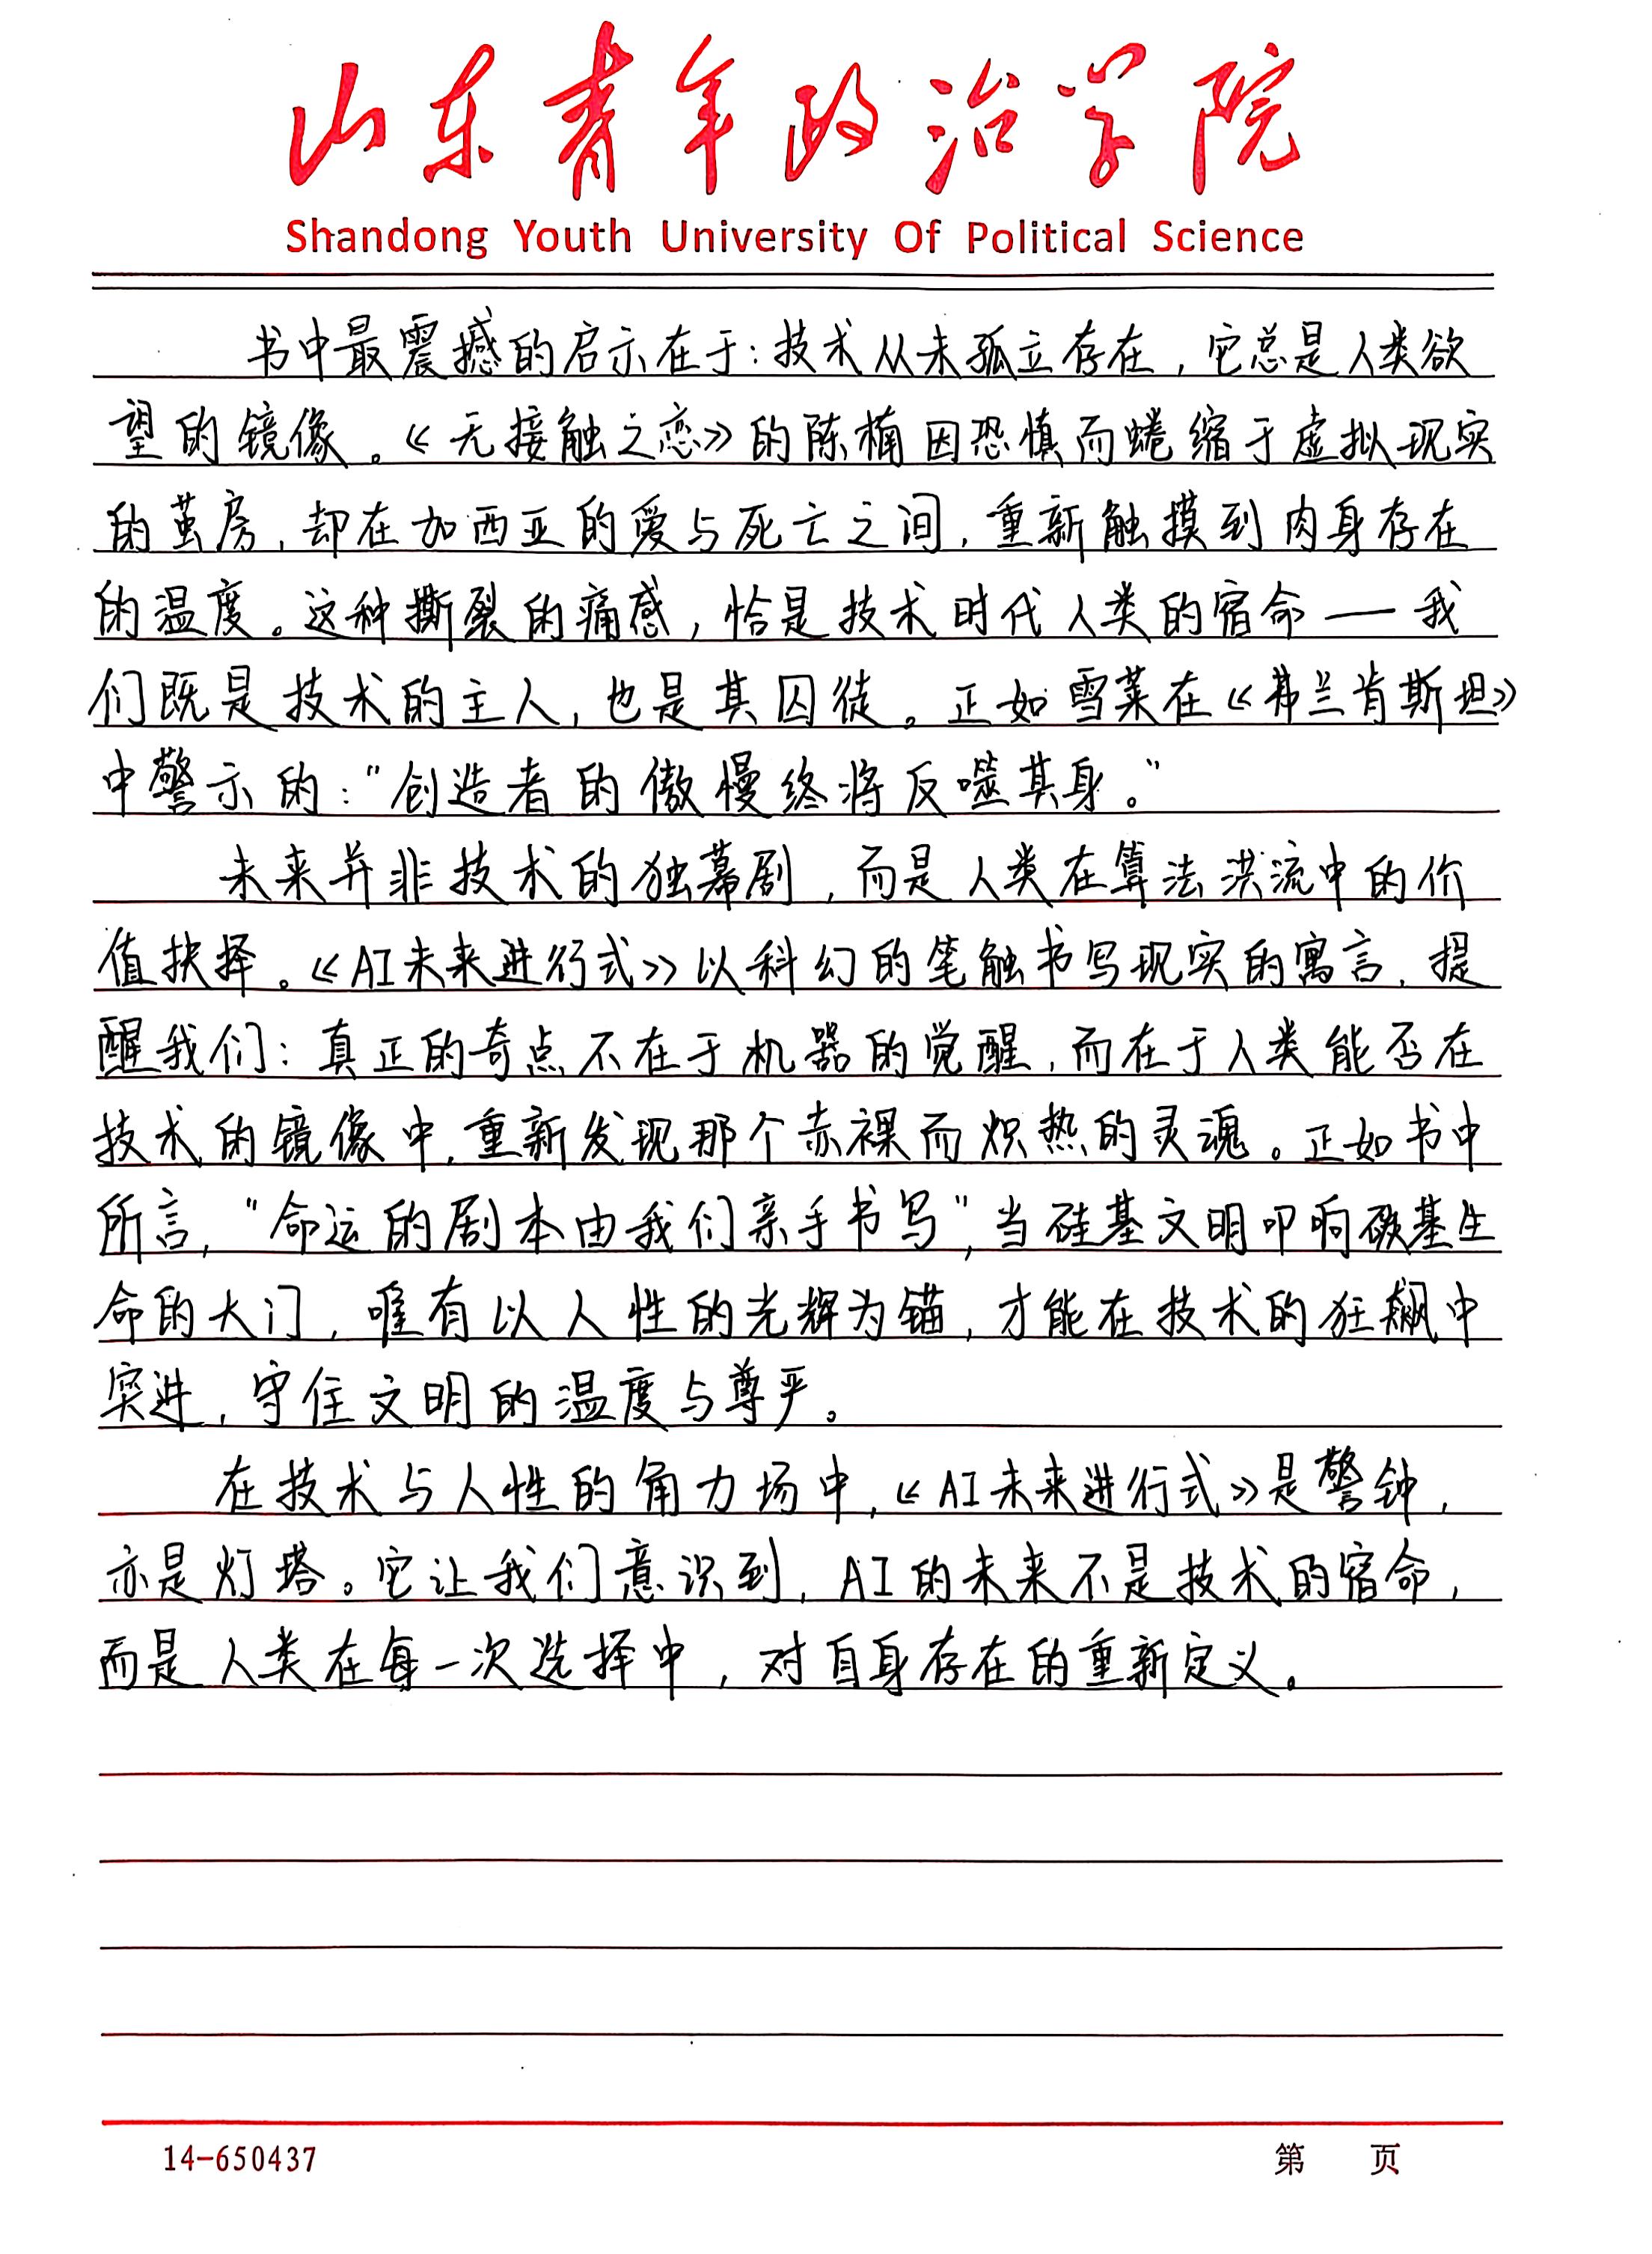 山东青年政治学院
Shandong Youth University Of Political Science
书中最震撼的启示在于：技术从未孤立存在，它总是人类欲
望的镜像。《无接触之恋》的陈楠因恐慎而蜷缩于虚拟现实
的茧房，却在加西亚的爱与死亡之间，重新触摸到肉身存在
的温度。这种撕裂的痛感，恰是技术时代人类的宿命—我
们既是技术的主人，也是其囚徒。正如雪莱在《弗兰肯斯坦》
中警示的："创造者的傲慢终将反噬其身。"
未来并非技术的独幕剧，而是人类在算法洪流中的价
值抉择。《AI未来进行式》以科幻的笔触书写现实的寓言，提
醒我们：真正的奇点不在于机器的觉醒，而在于人类能否在
技术的镜像中，重新发现那个赤裸而炽热的灵魂。正如书中
所言，"命运的剧本由我们亲手书写"，当硅基文明叩响碳基生
命的大门，唯有以人性的光辉为锚，才能在技术的狂飙中
突进，守住文明的温度与尊严。
在技术与人性的角力场中，《AI未来进行式》是警钟，
亦是灯塔。它让我们意识到，AI的未来不是技术的宿命，
而是人类在每一次选择中，对自身存在的重新定义。
14-650437
第 页